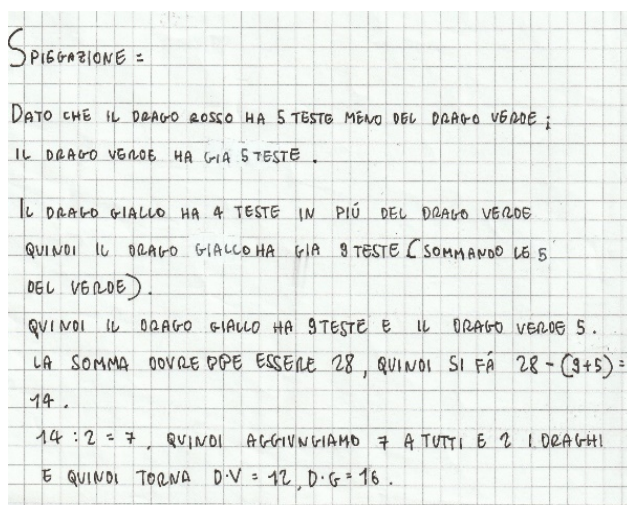 SPIEGAZIONE =
DATO CHE IL DRAGO ROSSO HA 5 TESTE MENO DEL DRAGO VERDE ;
IL DRAGO VERDE HA GIA 5 TESTE .
IL DRAGO GIALLO HA 4 TESTE IN PIÚ DEL DRAGO VERDE
QUINDI IL DRAGO GIALLO HA GIA 9 TESTE (SOMMANDO LE 5
DEL VERDE).
QUINDI IL DRAGO GIALLO HA 9 TESTE E IL DRAGO VERDE 5.
LA SOMMA DOVREPPE ESSERE 28, QUINDI SI FÁ 28 - (9+5) =
14.
14 : 2 = 7, QUINDI AGGIUNGIAMO 7 A TUTTI E 2 I DRAGHI
E QUINDI TORNA D.V = 12, D.G = 16.